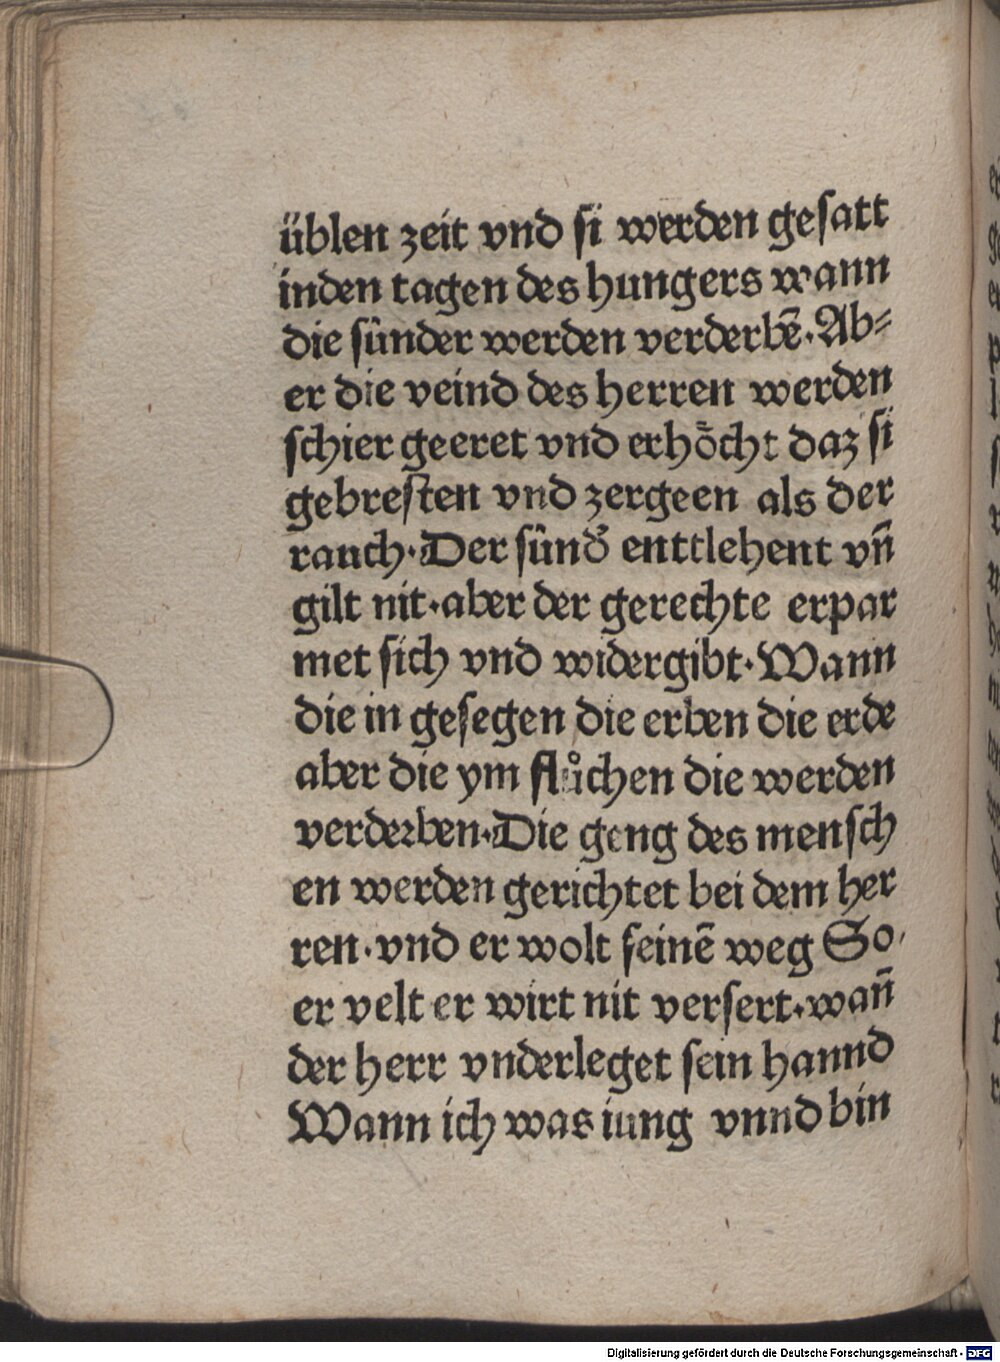 üblen zeit vnd si werden gesatt
inden tagen des hungers wann
die sünder werden verderbē. Ab⸗
er die veind des herren werden
schier geeret vnd erhöcht daz si
gebresten vnd zergeen als der
rauch. Der sünd᷑ enttlehent vn̄
gilt nit. aber der gerechte erpar
met sich vnd widergibt. Wann
die in gesegen die erben die erde
aber die ym flůchen die werden
verderben. Die geng des mensch
en werden gerichtet bei dem her
ren. vnd er wolt seinē weg So
er velt er wirt nit versert. wan̄
der herr vnderleget sein hannd
Wann ich was iung vnnd bin
Digitalisierung gefördert durch die Deutsche Forschungsgemeinschaft - DFG